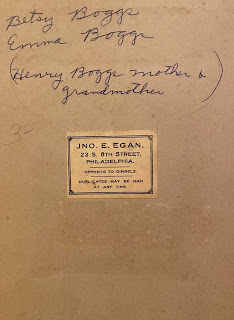 Betsy Boggs
Emma Boggs
(Henry Boggs mother &
grandmother)
3-
JNO. E. EGAN,
23 S. 8TH STREET,
PHILADELPHIA.
OPPOSITE TO GIMBELS.
DUPLICATES MAY BE HAD
AT ANY TIME.